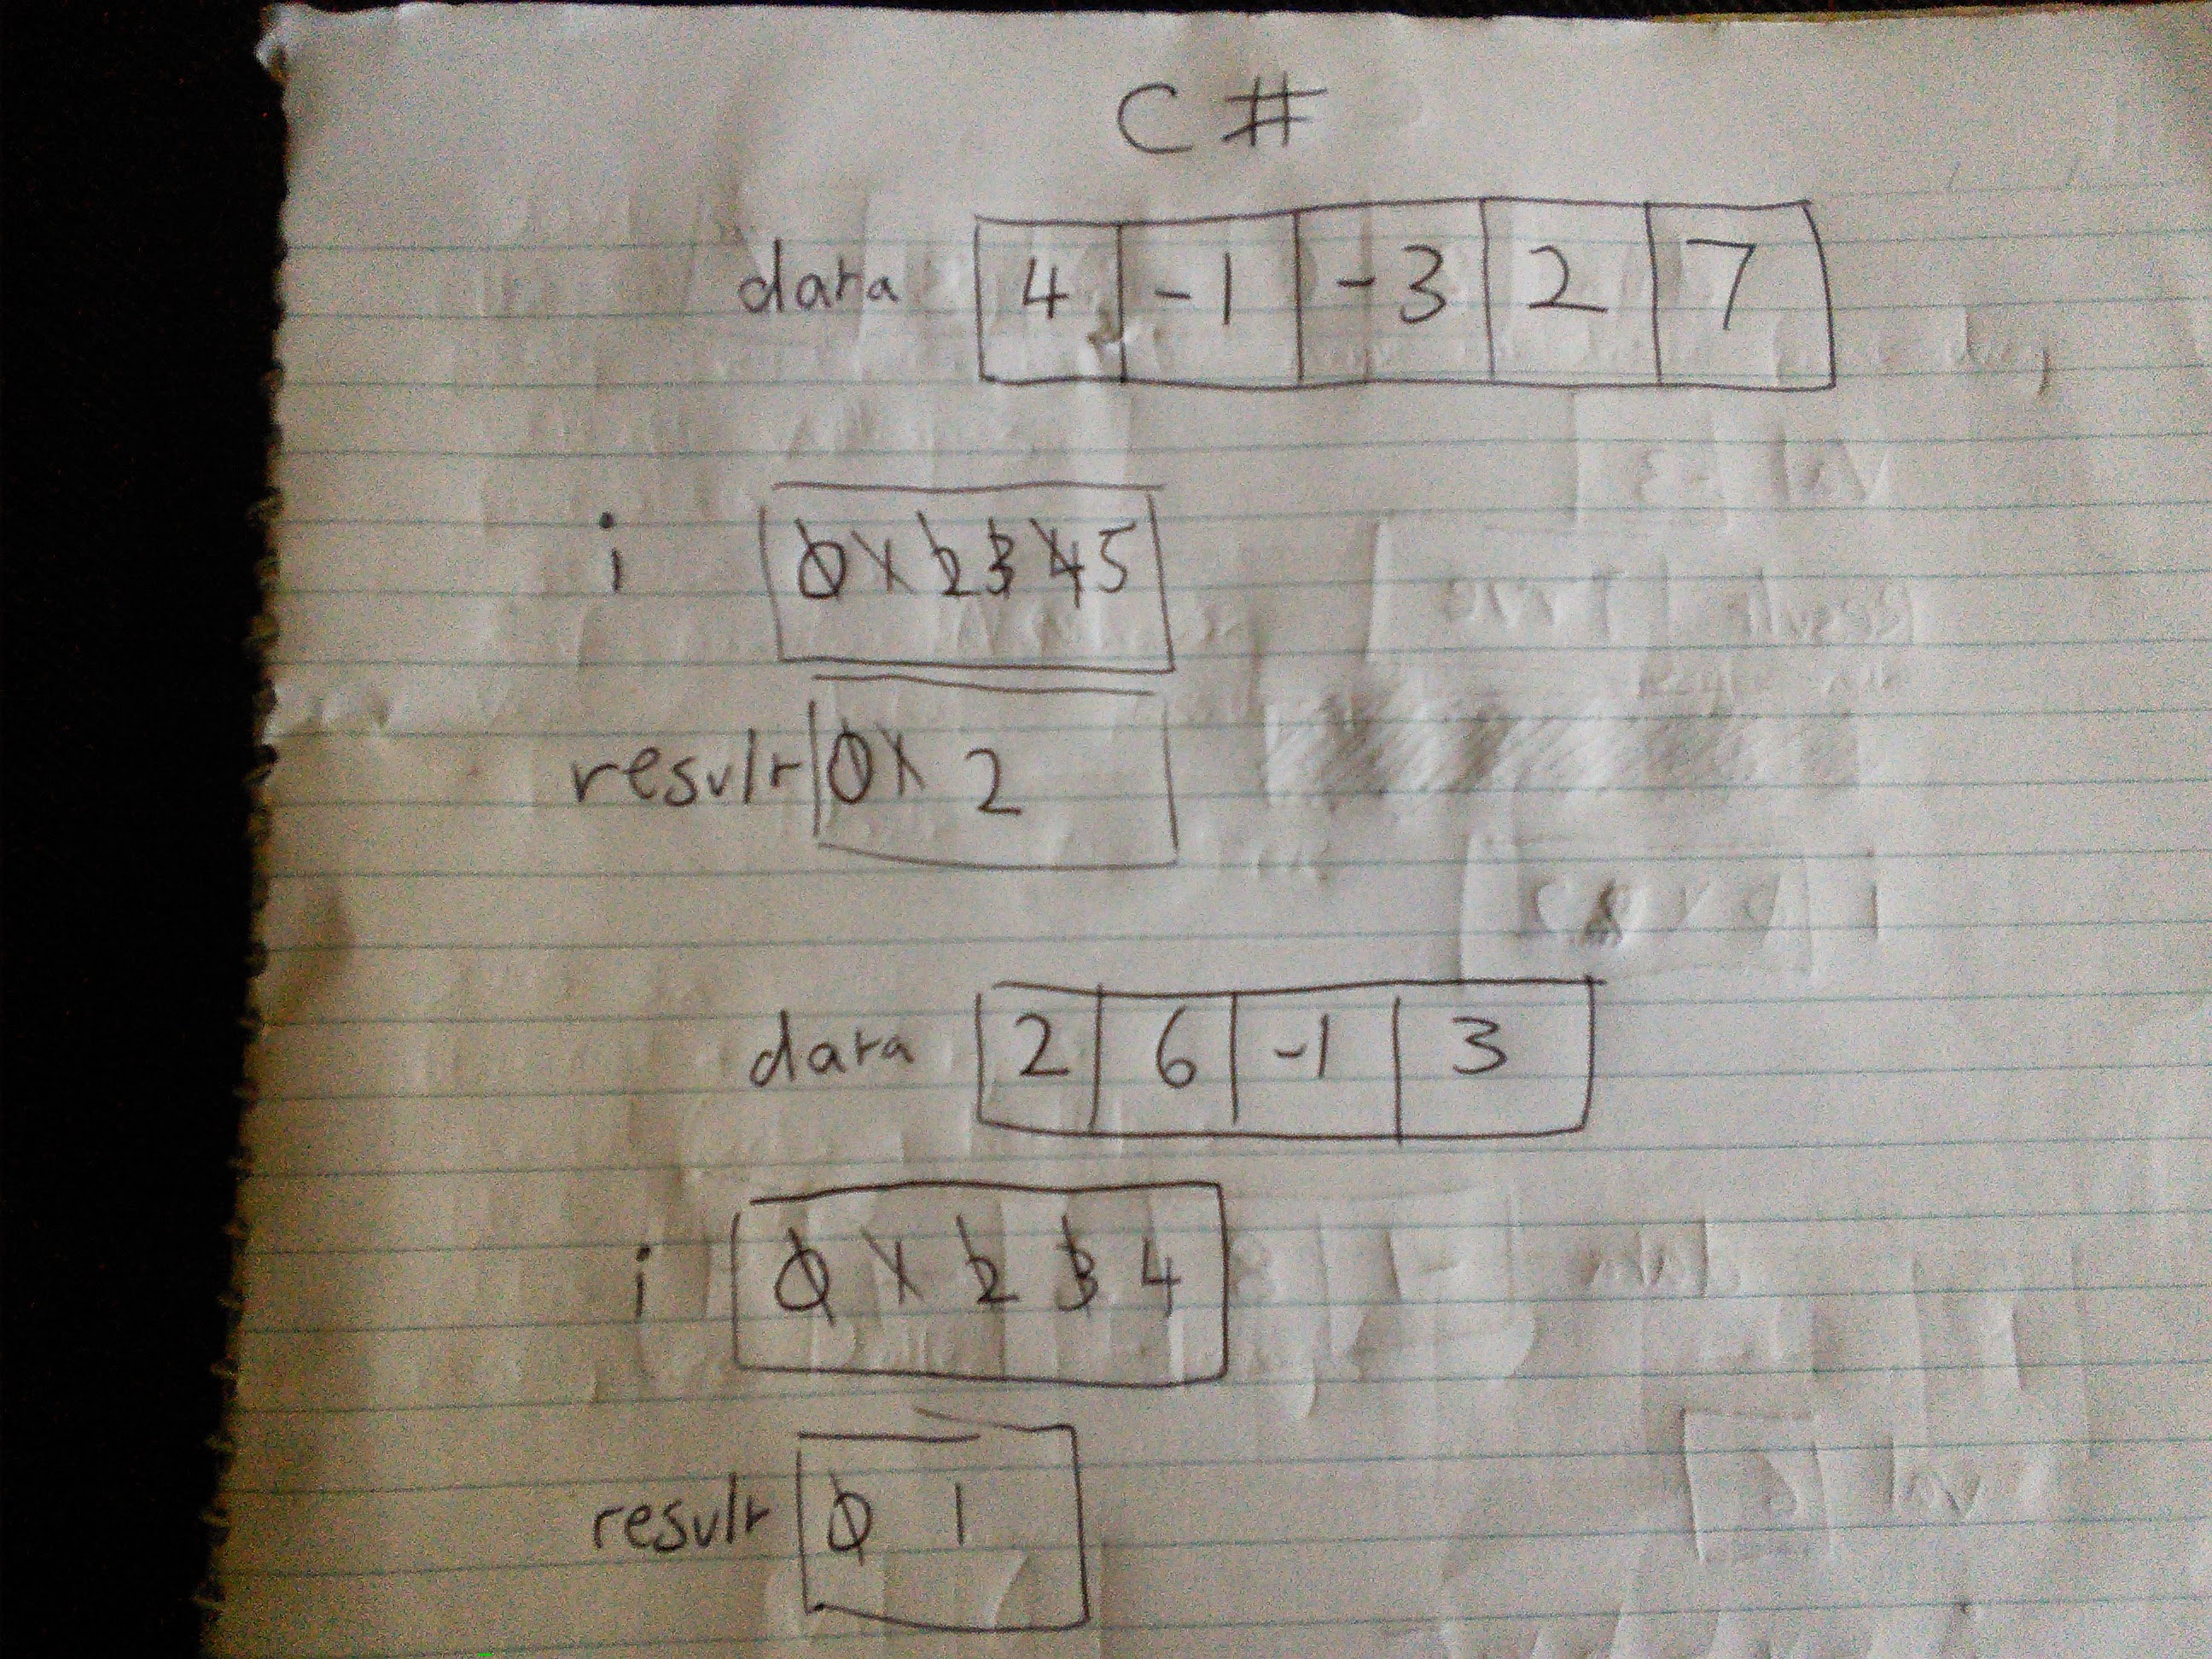 C#
data 4 -1 -3 2 7
i 0 1 2 3 4 5
result 0 1 2
data 2 6 -1 3
i 0 1 2 3 4
result 0 1